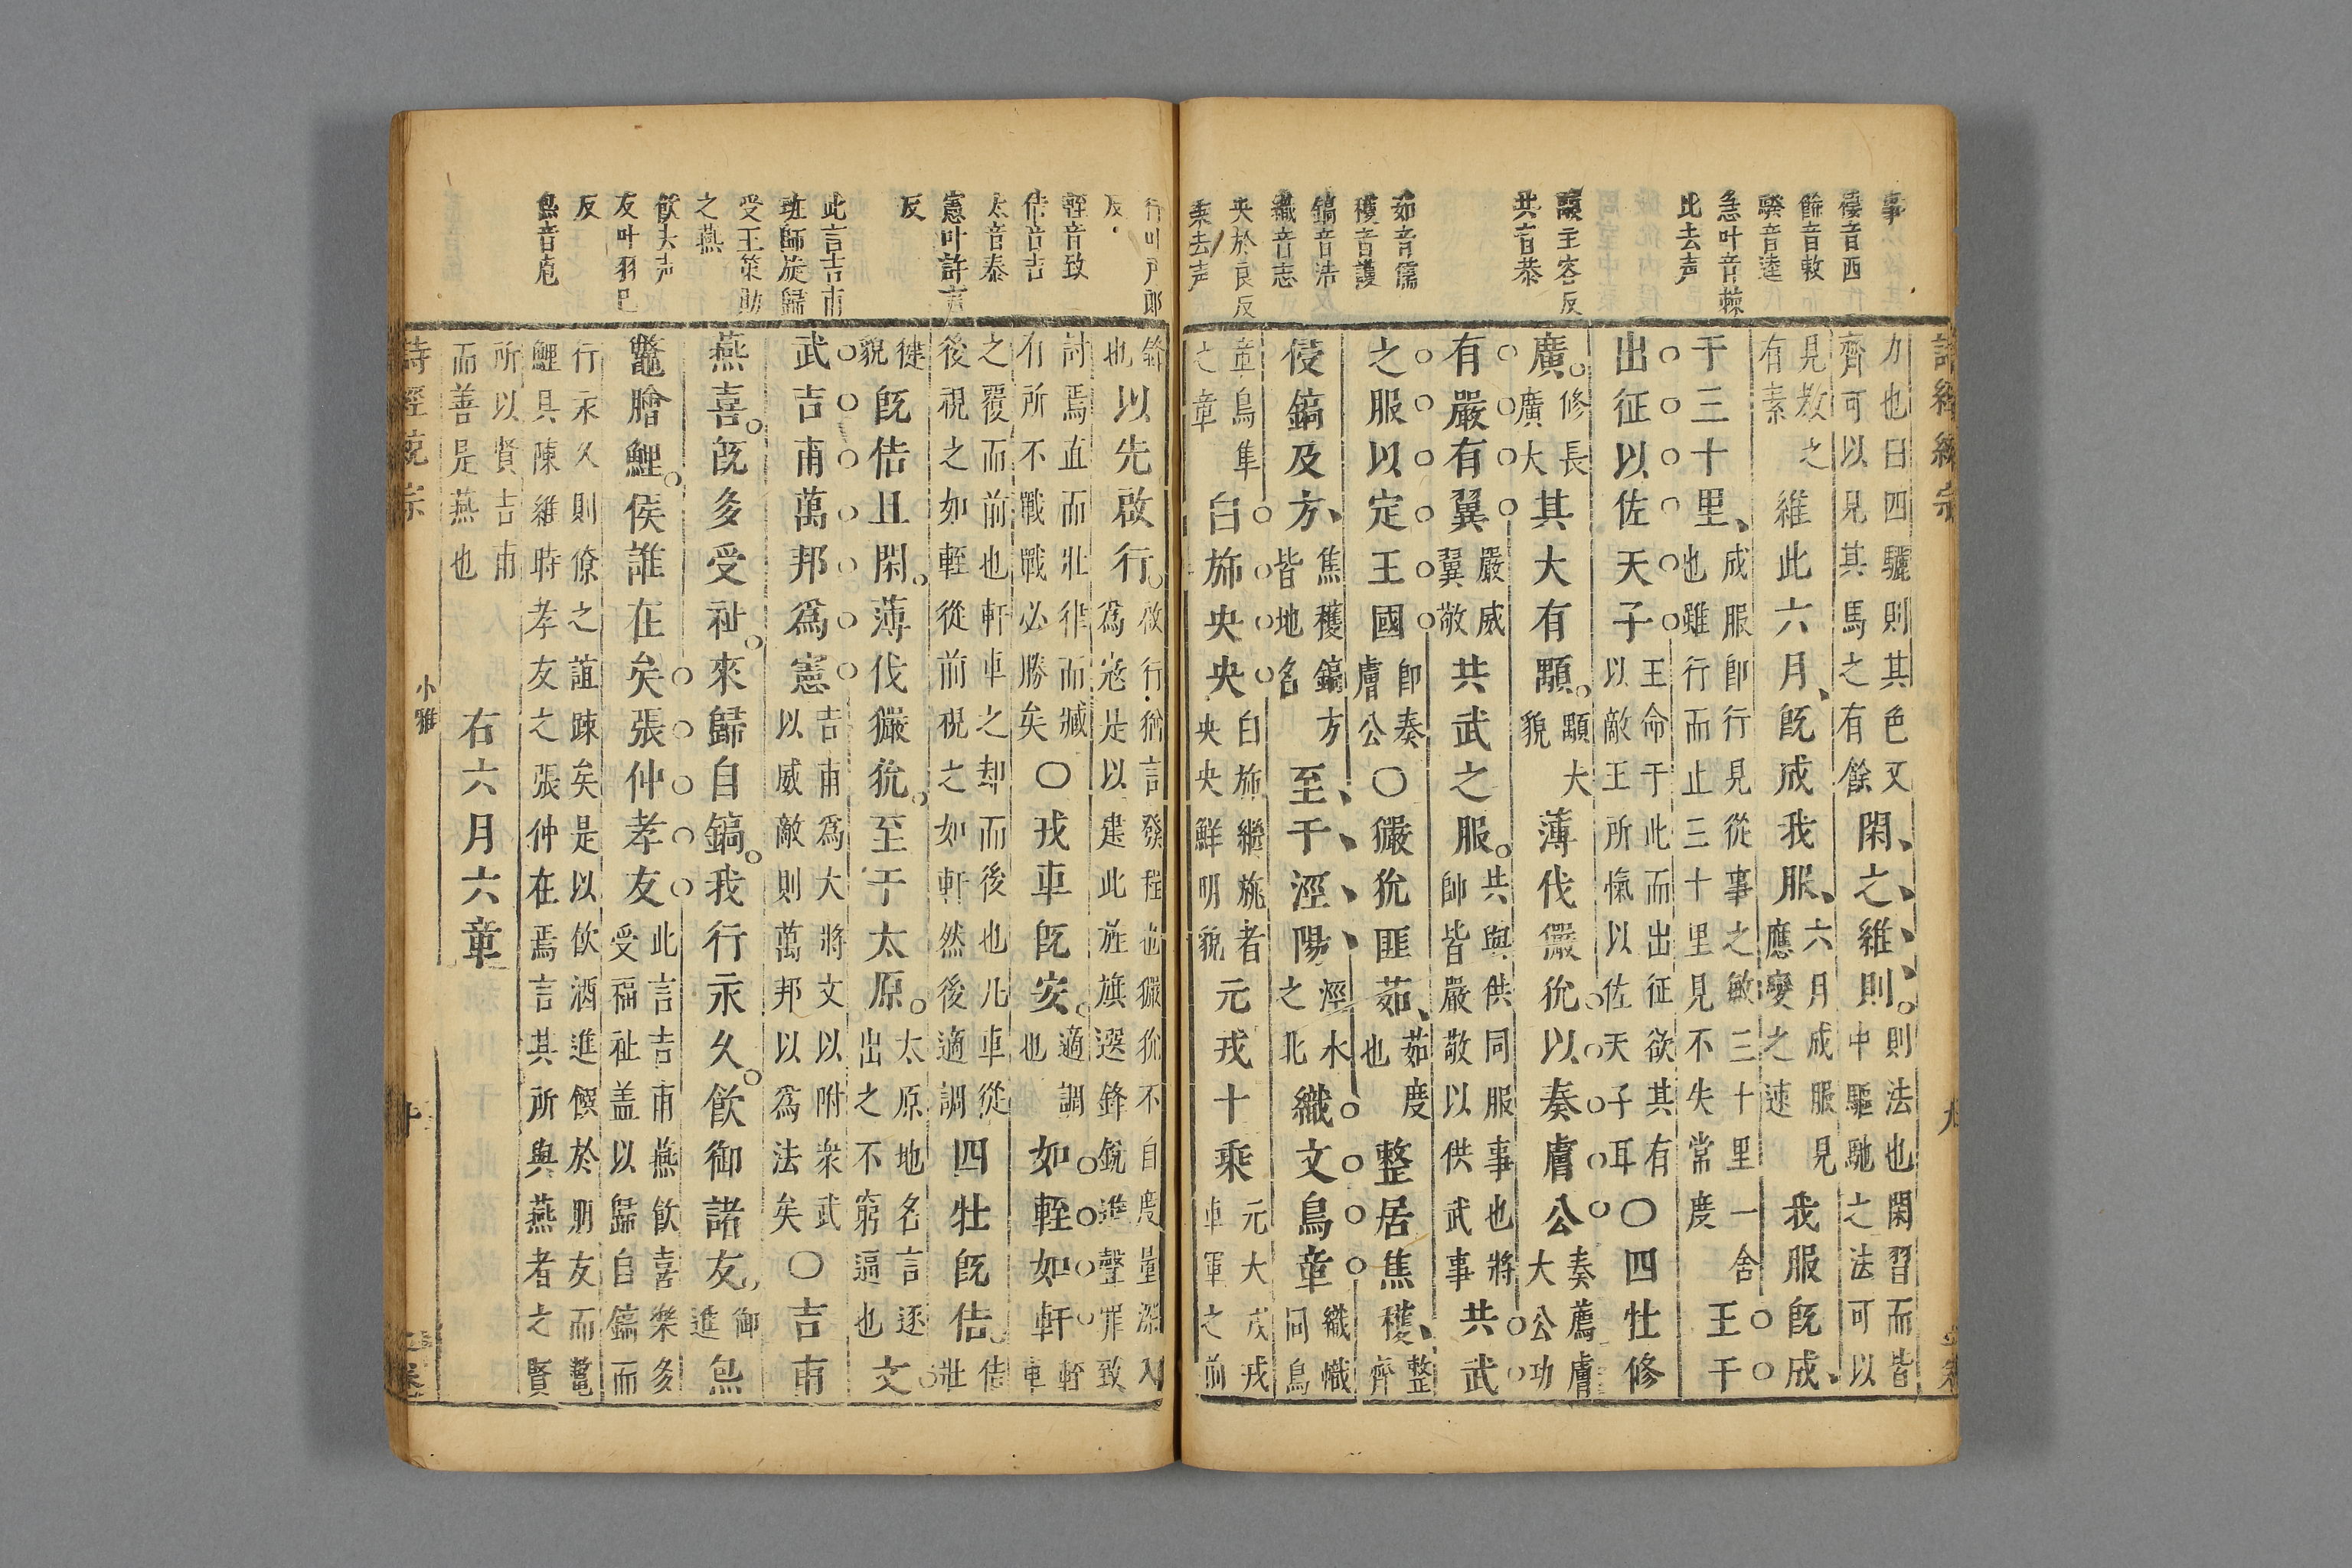 事
棲音西
餙音敕
騤音逵
急叶音棘
比去声
顒玉容反
共音恭
茹音孺
穫音護
鎬音浩
織音志
央於良反
乗去声
詩經繹宗
力也曰四驪則其色又
齊可以見其馬之有餘
閑之維則
則法也閑習而皆
中驅馳之法可以
見教之
有素
維此六月旣成我服
六月成服見
應變之速
我服旣成
于三十里
成服卽行見從事之敏三十里一舍
也雖行而止三十里見不失常度
王于
出征以佐天子
王命于此而出征欲其有
以敵王所愾以佐天子耳
○四牡修
廣
修長
廣大
其大有顒
顒大
貌
薄伐玁狁以奏膚公
奏薦膚
大公功
有嚴有翼
嚴威
翼敬
共武之服
共與供同服事也將
帥皆嚴敬以供武事
共武
之服以定王國
卽奏
膚公
○玁狁匪茹
茹度
也
整居焦穫
整
齊
侵鎬及方
焦穫鎬方
皆地名
至于涇陽
涇水
之北
織文鳥章
織幟
同鳥
章鳥隼
之章
白斾央央
白斾繼旐者
央央鮮明貌
元戎十乘
元大戎戎
車軍之前
九
行叶戸郎
反
輊音致
佶音吉
太音泰
憲叶許言
反
此言吉甫
班師旋歸
受王策勛
之燕
飲去声
友叶羽已
反
炰音庖
鋒
也
以先啟行
啟行猶言發程也玁狁不自度量深入
爲宼是以建此旌旗選鋒銳進聲罪致
討焉直而壯律而臧
有所不戰戰必勝矣
○戎車旣安
適調
也
如輊如軒
軒
車
之覆而前也軒車之却而後也凡車從
後視之如輊從前視之如軒然後適調
四牡旣佶
佶
壯
徤
貌
旣佶且閑薄伐玁狁至于太原
太原地名言逐
出之不窮逼也
文
武吉甫萬邦爲憲
吉甫爲大將文以附衆武
以威敵則萬邦以爲法矣
○吉甫
燕喜旣多受祉來歸自鎬我行永久飮御諸友
御
進
炰
鼈膾鯉侯誰在矣張仲孝友
此言吉甫燕飮喜樂多
受福祉盖以歸自鎬而
行永久則僚之誼踈矣是以飮酒進饌於朋友而鼈
鯉具陳維時孝友之張仲在焉言其所與燕者之賢
所以賢吉甫
而善是燕也
右六月六章
小雅
十